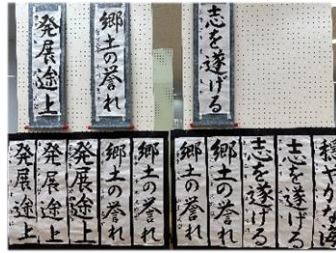 発展途上
郷土の誉れ
志を遂げる
発展途上
発展途上
発展途上
郷土の誉れ
郷土の誉れ
郷土の誉れ
郷土の誉れ
志を遂げる
志を遂げる
穏やかな海